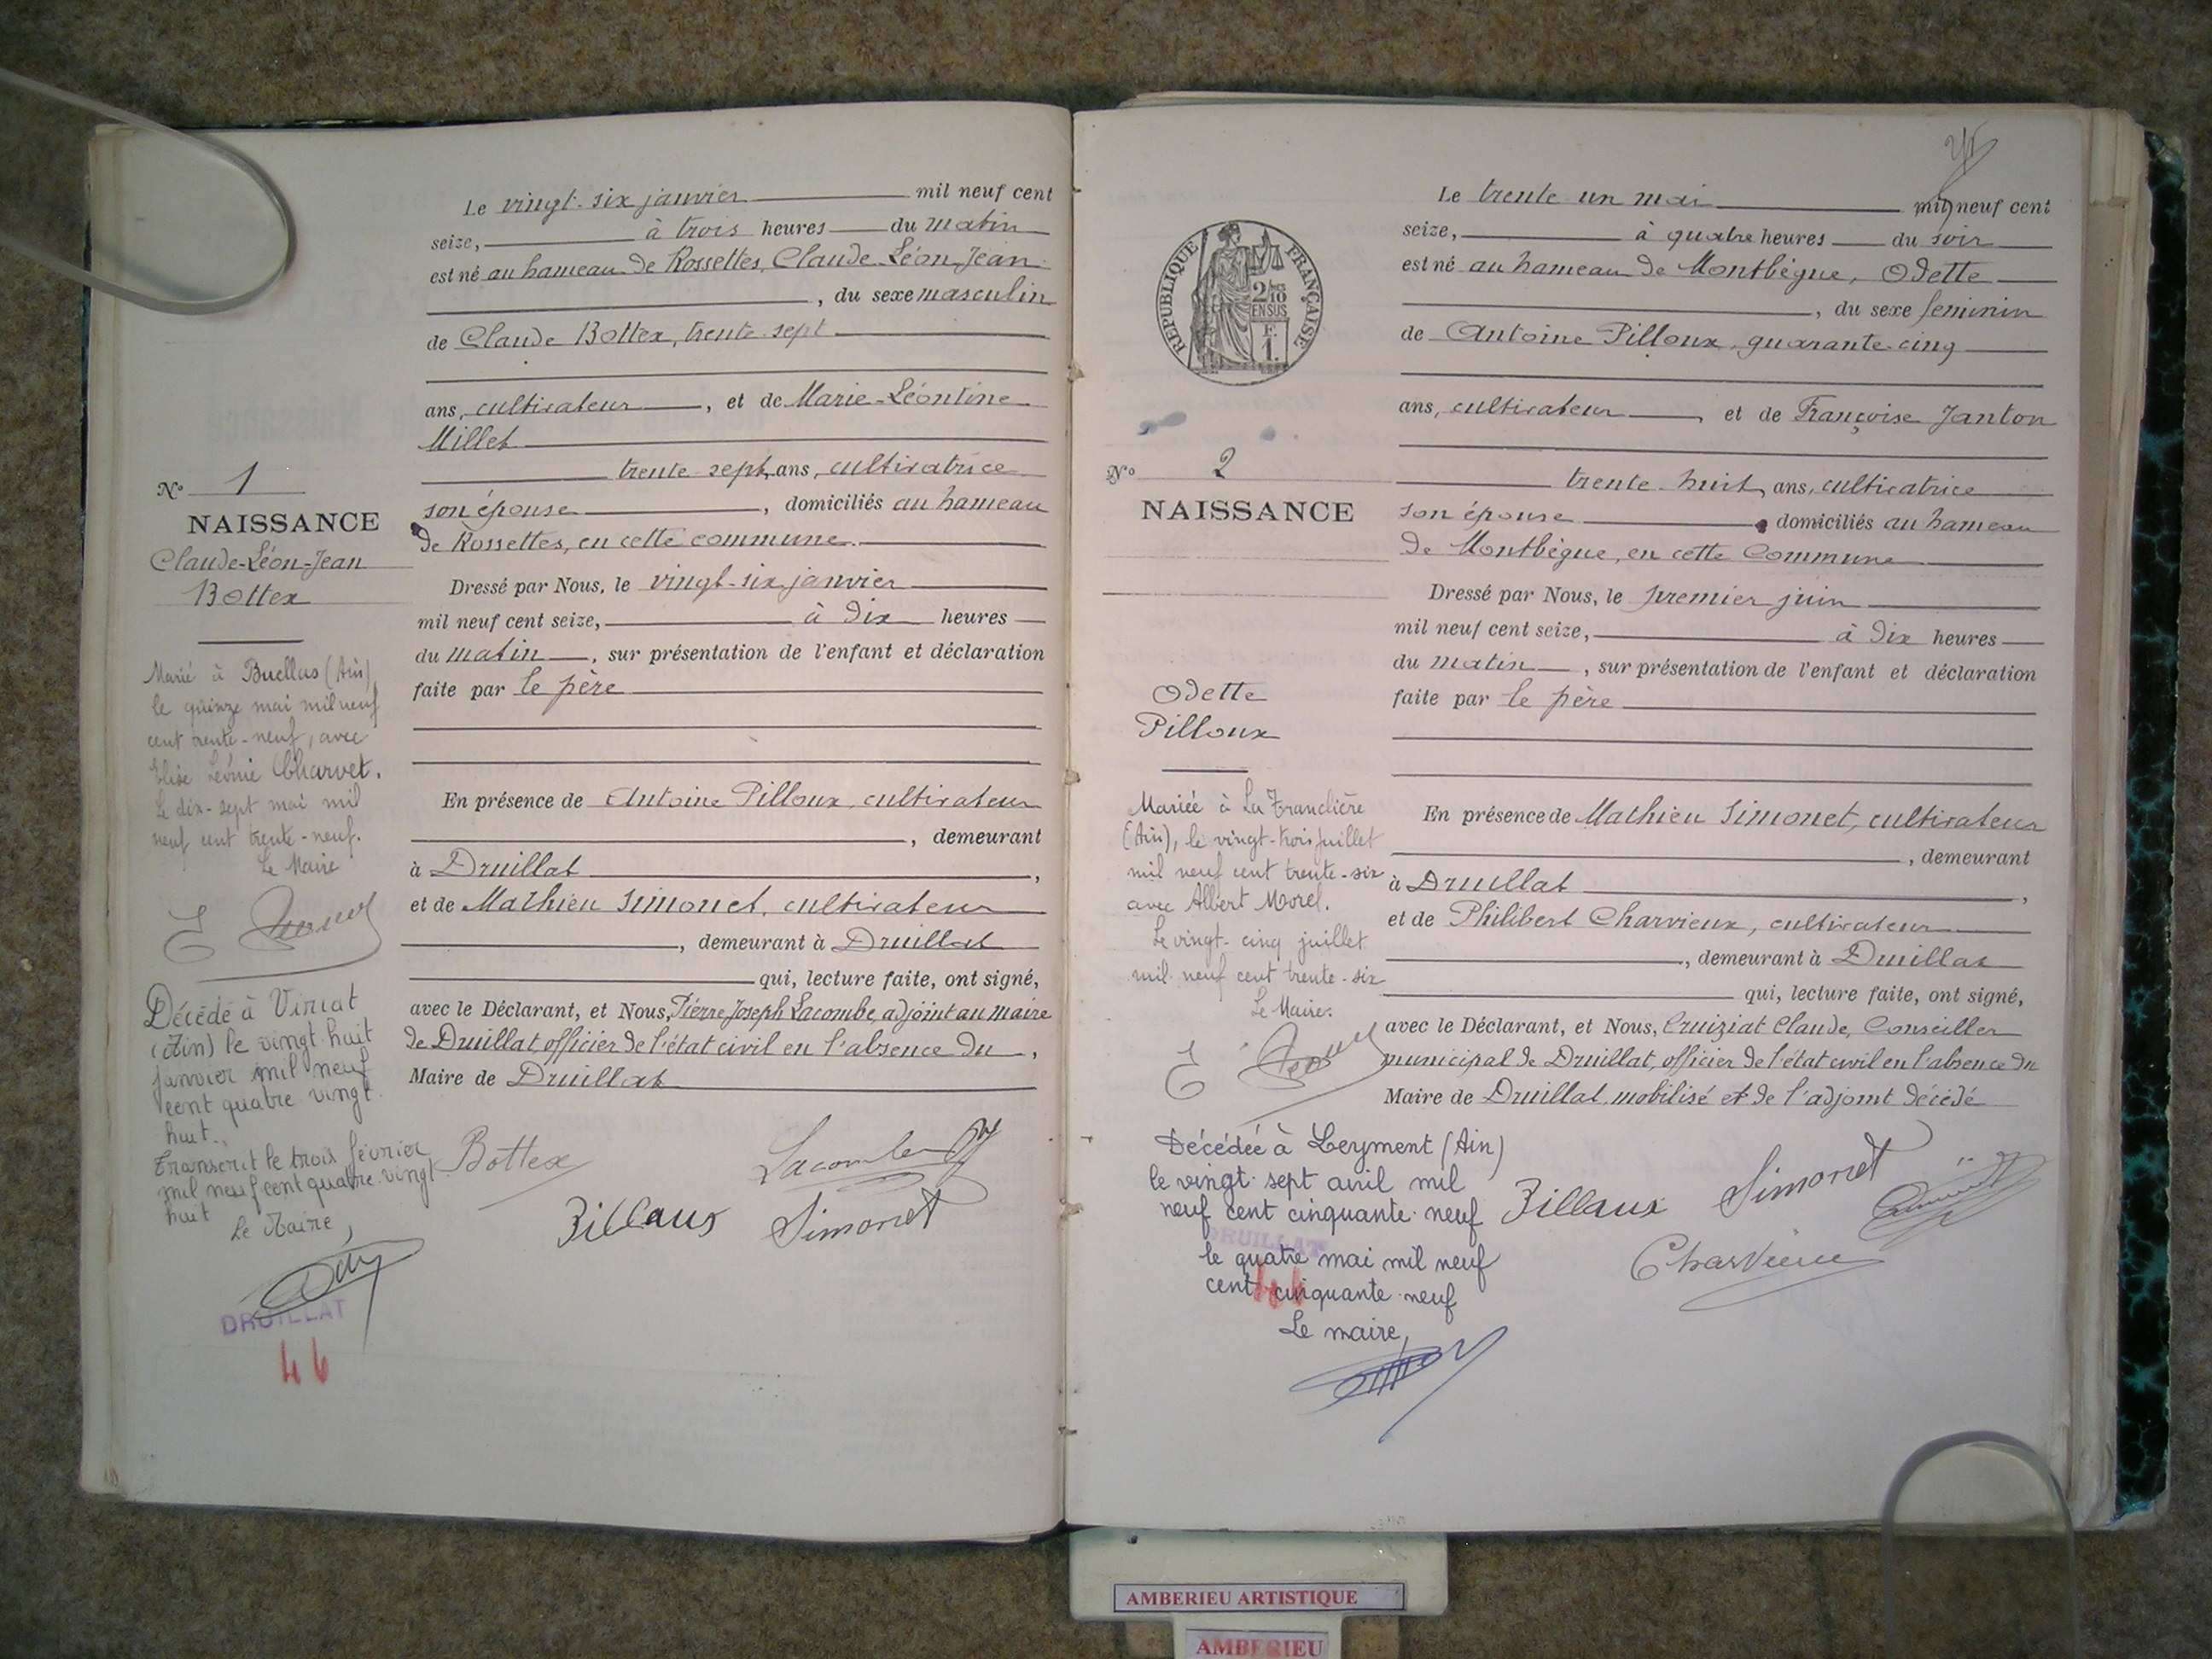 Le vingt-six janvier mil neuf cent
seize, à trois heures du matin
est né au hameau de Rossettes, Claude-Léon-Jean
, du sexe masculin
de Claude Bottex, trente-sept
ans, cultivateur, et de Marie-Léontine
Millet
trente-sept ans, cultivatrice
son épouse, domiciliés au hameau
de Rossettes, en cette commune.
Dressé par Nous, le vingt-six janvier
mil neuf cent seize, à dix heures
du matin, sur présentation de l'enfant et déclaration
faite par le père
En présence de Antoine Pilloux, cultivateur
, demeurant
à Druillat,
et de Mathieu Simonet, cultivateur
, demeurant à Druillat
qui, lecture faite, ont signé,
avec le Déclarant, et Nous, Pierre Joseph Lacombe, adjoint au maire
de Druillat, officier de l'état civil en l'absence du,
Maire de Druillat
Bottex
Lacombe
Pillaux Simonet
No 1
NAISSANCE
Claude-Léon-Jean
Bottex
Marié à Buellas (Ain)
le quinze mai mil neuf
cent trente-neuf, avec
Elise Léonie Charvet.
Le dix-sept mai mil
neuf cent trente-neuf.
Le Maire
Décédé à Viriat
(Ain) le vingt-huit
janvier mil neuf
cent quatre vingt
huit.
Transcrit le trois février
mil neuf cent quatre-vingt
huit
Le Maire,
DRUILLAT
46
Le trente un mai mil neuf cent
seize, à quatre heures du soir
est né au hameau de Montbègue, Odette
, du sexe feminin
de Antoine Pilloux, quarante-cinq
ans, cultivateur, et de Françoise Janton
trente-huit ans, cultivatrice
son épouse domiciliés au hameau
de Montbègue, en cette Commune
Dressé par Nous, le premier juin
mil neuf cent seize, à dix heures
du matin, sur présentation de l'enfant et déclaration
faite par le père
En présence de Mathieu Simonet, cultivateur
, demeurant
à Druillat,
et de Philibert Charvieux, cultivateur
, demeurant à Druillat
qui, lecture faite, ont signé,
avec le Déclarant, et Nous, Cruiziat Claude, Conseiller
municipal de Druillat, officier de l'état civil en l'absence du
Maire de Druillat, mobilisé et de l'adjoint décédé
Pillaux Simonet
Charvieux
RÉPUBLIQUE FRANÇAISE
2/10
EN SUS
F.
1.
No 2
NAISSANCE
Odette
Pilloux
Mariée à La Tranclière
(Ain), le vingt-trois juillet
mil neuf cent trente-six
avec Albert Morel.
Le vingt-cinq juillet
mil neuf cent trente-six
Le Maire:
Décédée à Leyment (Ain)
le vingt-sept avril mil
neuf cent cinquante-neuf
DRUILLAT
le quatre mai mil neuf
cent cinquante-neuf
Le maire,
AMBERIEU ARTISTIQUE
AMBERIEU